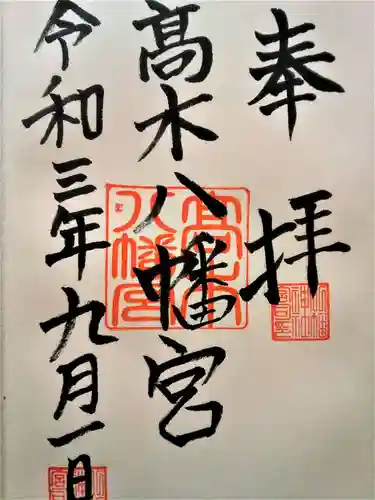 奉拝
髙木八幡宮
令和三年九月一日
髙木八幡宮